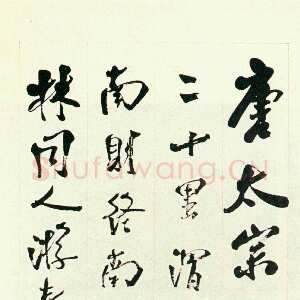 唐太宗
二十里渭
南则终南
林同人游
Shufawang.CN